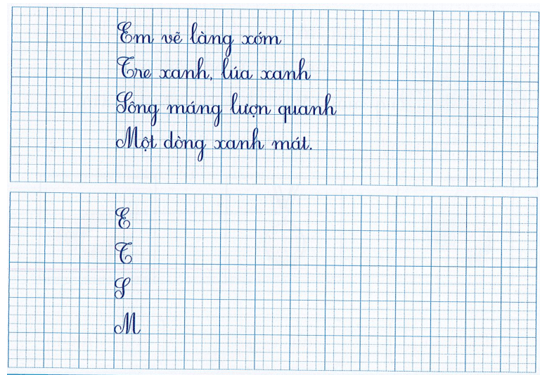 Em vẽ làng xóm
Tre xanh, lúa xanh
Sông máng lượn quanh
Một dòng xanh mát.
E
T
S
M